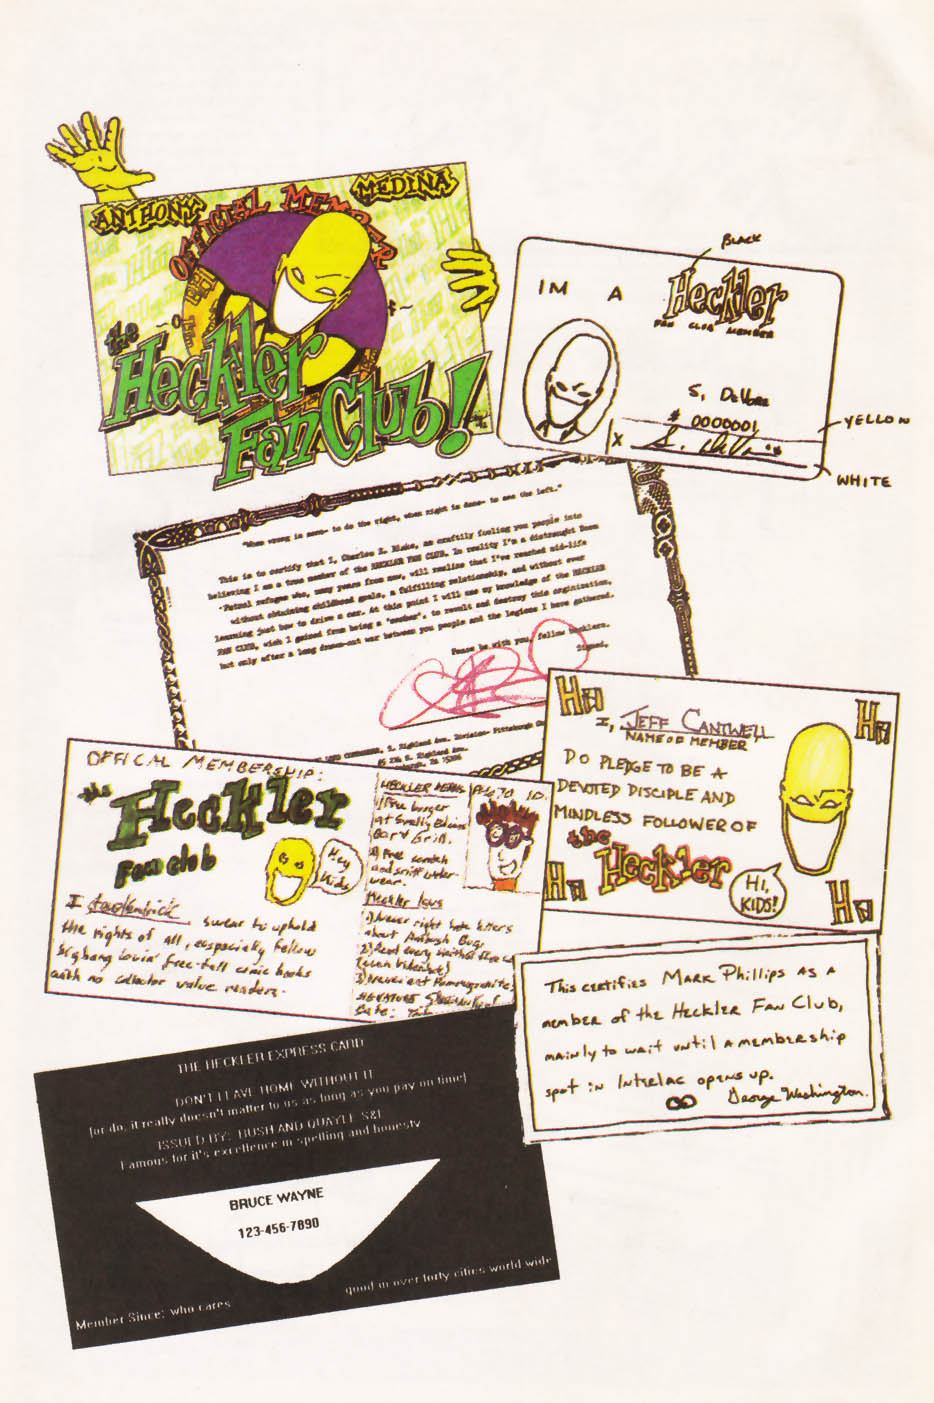 ANTHONY MEDINA
OFFICIAL MEMBER
the
Heckler
Fan Club!
BLACK
IM A Heckler
FAN CLUB MEMBER
S. DeVore
# 0000001
X
YELLOW
WHITE
"When wrong is done- to do the right, when right is done- to see the left."
This is to certify that I, Charles E. Blake, am craftily fooling you people into
believing I am a true member of the HECKLER FAN CLUB. In reality I'm a distraught Doom
-Patrol refugee who, many years from now, will realize that I've reached mid-life
without obtaining childhood goals, a fulfilling relationship, and without ever
learning just how to drive a car. At this point I will use my knowledge of the HECKLER
FAN CLUB, wich I gained from being a "member", to revolt and destroy this orginization,
but only after a long drawn-out war between you people and the legions I have gathered.
Peace be with you, fellow hecklers.
Signed,
S. Highland Ave. Division- Pittsburgh
S. Highland Ave.
PA 15206
Ha Ha
I, JEFF CANTWELL
NAME OF MEMBER
DO PLEDGE TO BE A
DEVOTED DISCIPLE AND
MINDLESS FOLLOWER OF
the
Heckler
HI,
KIDS!
Ha Ha
OFFICAL MEMBERSHIP:
the
Heckler
Fan club
Hey
Kids
I swear to uphold
the rights of all, esspecially fellow
bigbang lovin' free-fall comic books
with no collector value readers.
HECKLER
1) Free burger
at
Bar & Grill.
2) Free scratch
and sniff under
wear.
Heckler laws
1) Never right hate letters
about Ambush Bug.
2) Read every
3) Never eat Pommegranites.
SIGNATURE
Date:
This certifies Mark Phillips as a
member of the Heckler Fan Club,
mainly to wait until a membership
spot in Interlac opens up.
George Washington.
THE HECKLER EXPRESS CARD
DON'T LEAVE HOME WITHOUT IT
(or do, it really doesn't matter to us as long as you pay on time)
ISSUED BY: BUSH AND QUAYLE S&L
Famous for it's excellence in spelling and honesty
BRUCE WAYNE
123-456-7890
good in over forty cities world wide
Member Since: who cares